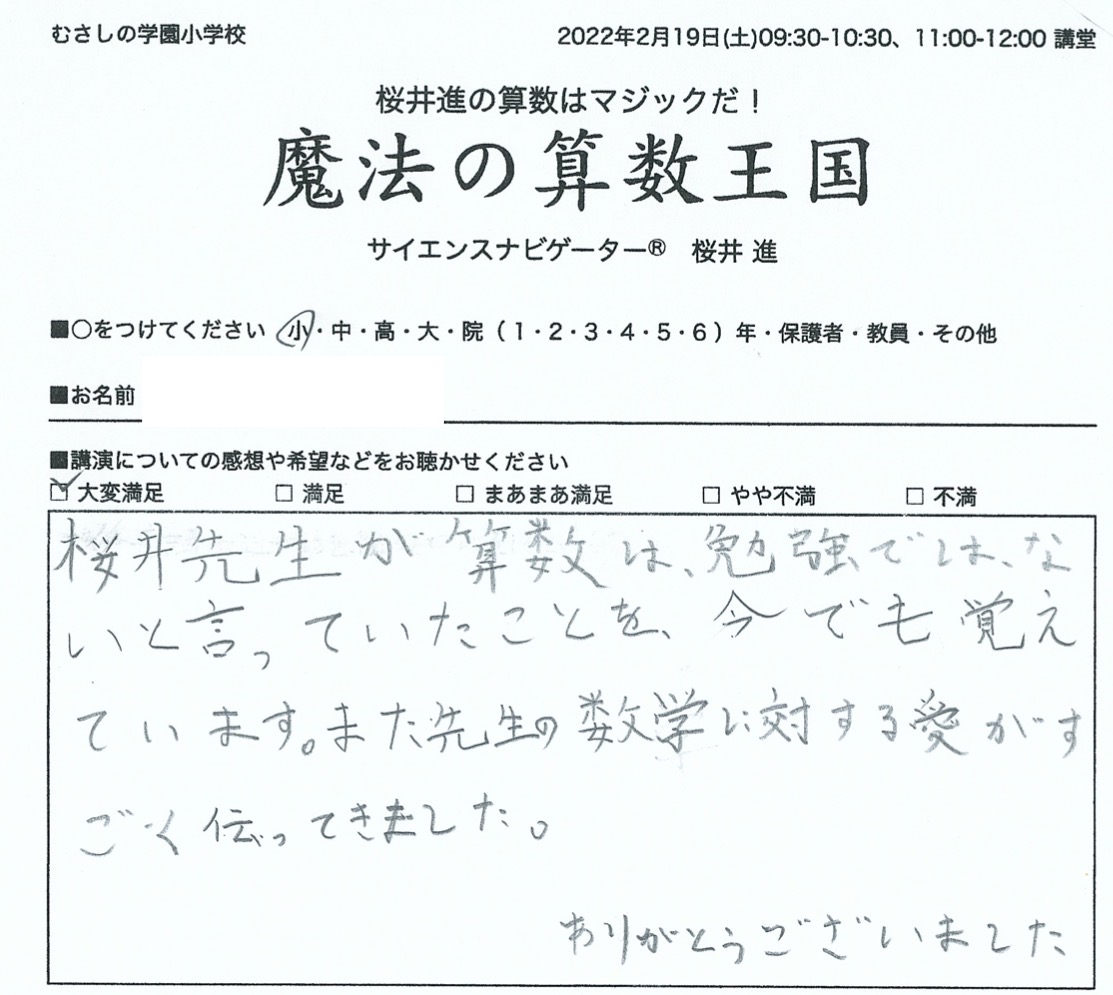 むさしの学園小学校
2022年2月19日(土)09:30-10:30、11:00-12:00 講堂
桜井進の算数はマジックだ！
魔法の算数王国
サイエンスナビゲーター® 桜井 進
■○をつけてください 小・中・高・大・院（1・2・3・4・5・6）年・保護者・教員・その他
■お名前
■講演についての感想や希望などをお聴かせください
☑ 大変満足 □ 満足 □ まあまあ満足 □ やや不満 □ 不満
桜井先生が算数は、勉強では、な
いと言っていたことを、今でも覚え
ています。また先生の数学に対する愛がす
ごく伝ってきました。
ありがとうございました